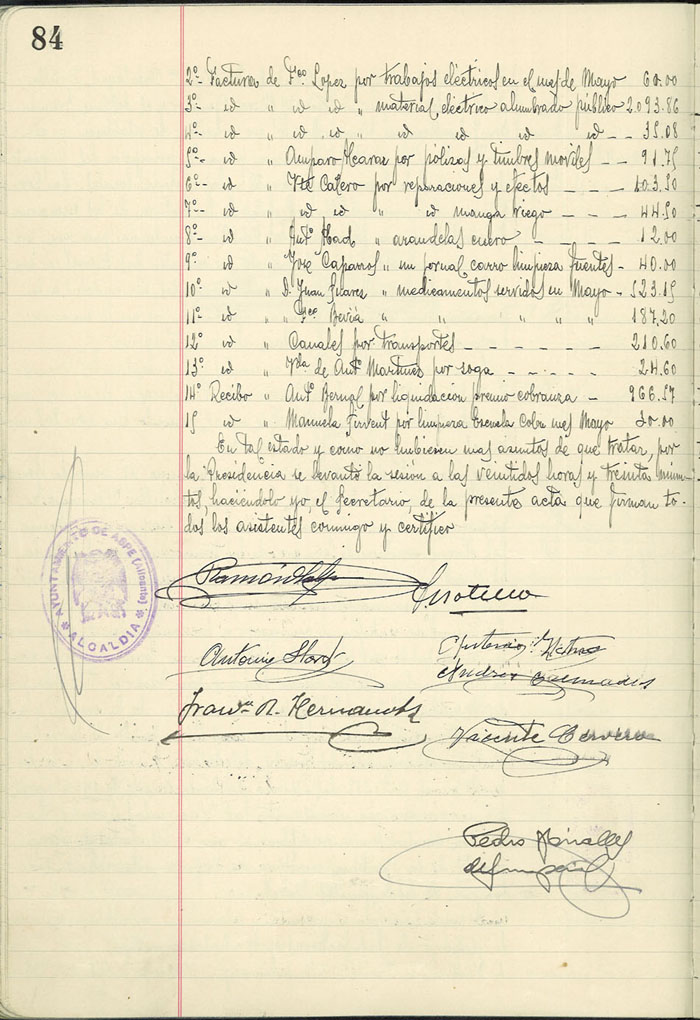 84
2º- Facturas de Fco Lopez por trabajos eléctricos en el mes de Mayo 60.00
3º- id " id id " material eléctrico alumbrado público 2.093.86
4º- id " id id " id id id id - 35.08
5º- id " Amparo Alcaraz por pólizas y timbres moviles - - 91.75
6º- id " Vte Calero por reparaciones y efectos - - - 103.50
7º- id " id id " id manga riego - - - 44.50
8º- id " Antº Abad " arandelas cuero - - - 12.00
9º id " José Caparros " un jornal carro limpieza fuentes - 40.00
10º id " D. Juan Suarez " medicamentos servidos en Mayo - 523.15
11º id " " Fco Beviá " " " " 187.20
12º id " Canales por transportes - - - 210.60
13º id " Vda de Antº Martinez por soga - - - - - 24.60
14º Recibo " Antº Bernal por liquidación premio cobranza - 966.57
15 id " Manuela Firvent por limpieza Escuela Cobn mes Mayo 30.00
En tal estado y como no hubiesen mas asuntos de que tratar, por
la Presidencia se levantó la sesión a las veintidos horas y treinta minu-
tos, haciéndolo yo, el Secretario, de la presente acta que firman to-
dos los asistentes conmigo y certifico
AYUNTAMIENTO DE ASPE (Alicante)
ALCALDIA
Ramón
Antonio
Antonio
Andrés
Franco R. Hernandez
Vicente Cervera
Pedro